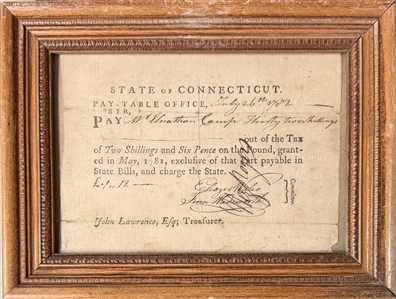 STATE OF CONNECTICUT.
PAY-TABLE OFFICE, July 26th 1782
SIR,
PAY Mr Camp Thirty two shillings
out of the Tax
of Two Shillings and Six Pence on the Pound, grant-
ed in May, 1781, exclusive of that part payable in
State Bills, and charge the State.
£ 1,, 12 —
Committee
John Lawrence, Esq; Treasurer.